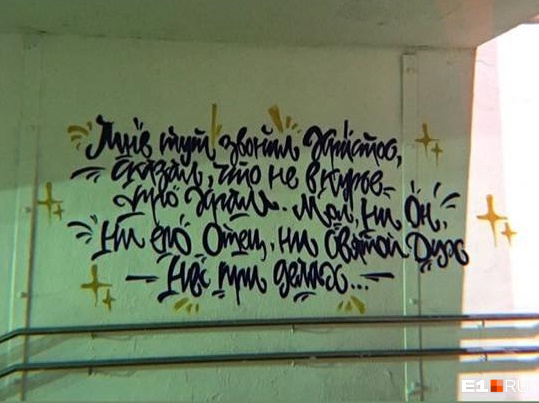 Мнѣ тут звонил Христос,
сказал, что не в курсе
про храм. Мол, ни Он,
Ни его Отец, ни Святой Дух
— Не при делах... —
E1.RU